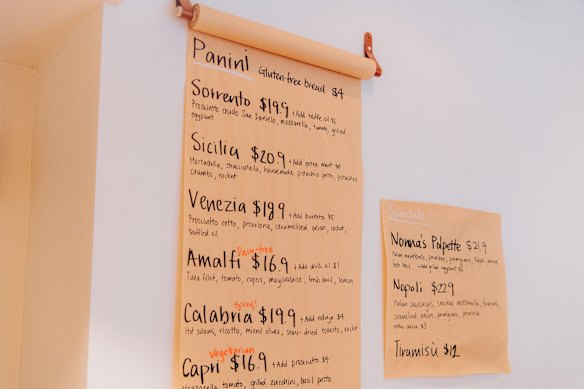 Panini Gluten-free bread $4
Sorrento $19.9 + Add truffle oil $2
Prosciutto crudo San Daniele, mozzarella, tomato, grilled
eggplant
Sicilia $20.9 + Add extra meat $4
Mortadella, stracciatella, housemade pistachio pesto, pistachio
crumbs, rocket
Venezia $18.9 + Add burrata $5
Prosciutto cotto, provolone, caramelised onion, rocket,
truffled oil
Dairy-free
Amalfi $16.9 + Add chilli oil $1
Tuna fillet, tomato, capers, mayonnaise, fresh basil, lemon
spicy!
Calabria $19.9 + Add nduja $4
Hot salami, ricotta, mixed olives, semi-dried tomato, rocket
Vegetarian
Capri $16.9 + Add prosciutto $4
Mozzarella, tomato, grilled zucchini, basil pesto
Specials!
Nonna's Polpette $21.9
meatballs, parmigiano,
Napoli $22.9
Italian sausages, smoked mozzarella,
caramelised onion, parmigiano,
Tiramisù $12